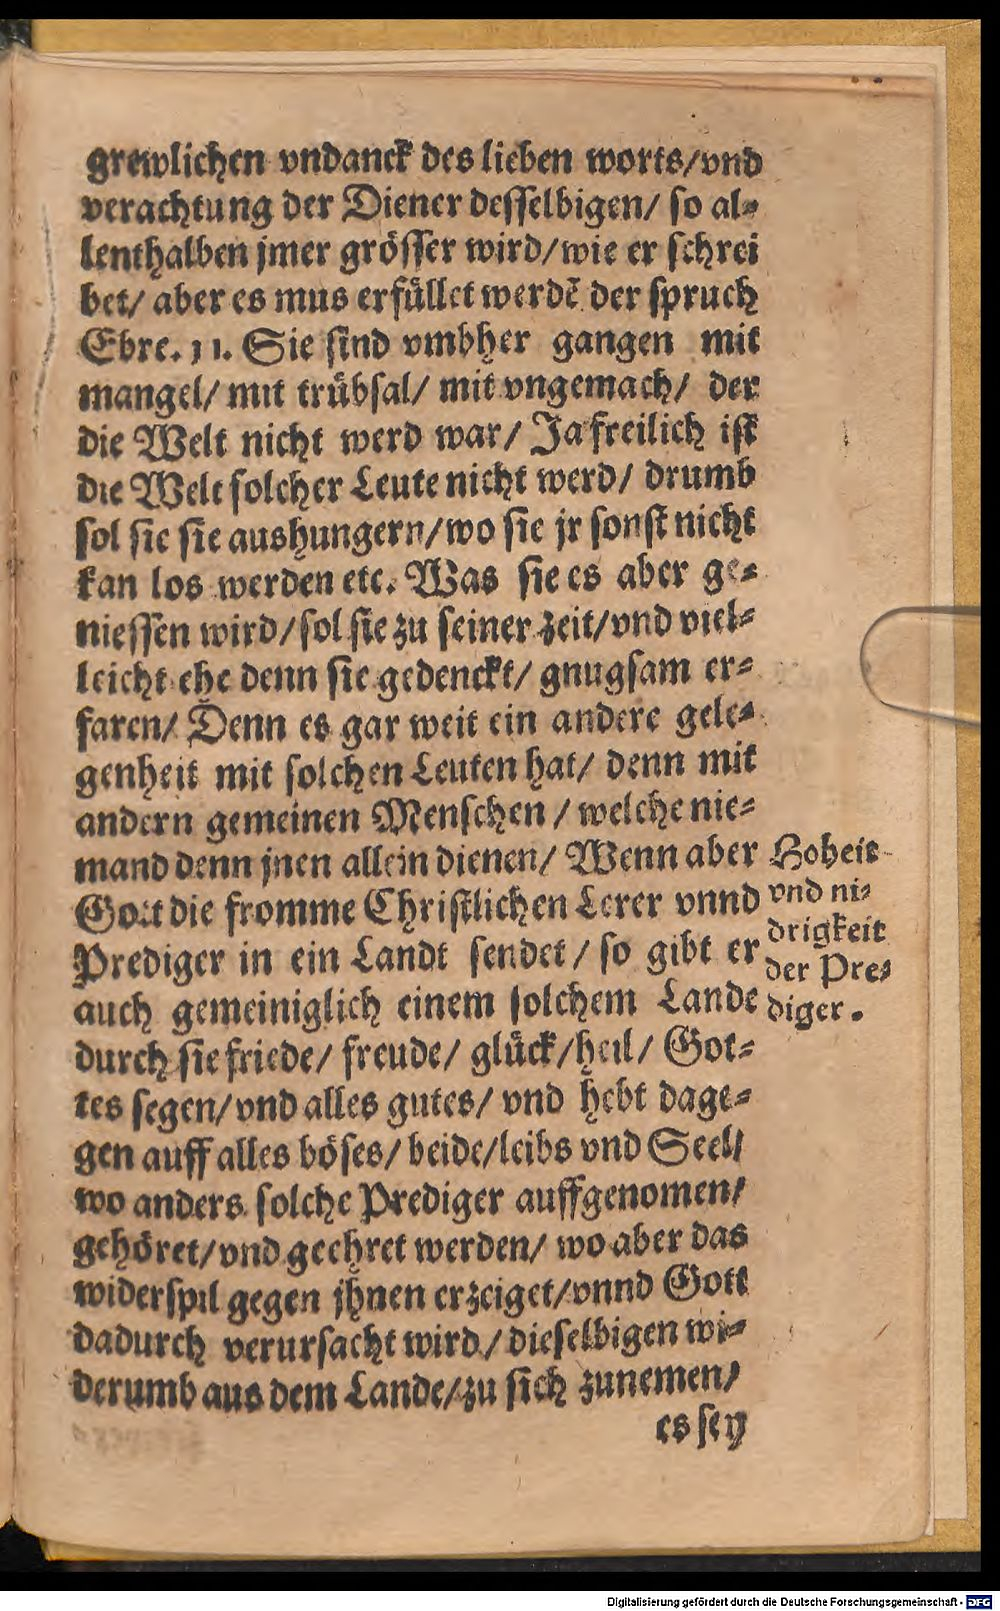 grewlichen vndanck des lieben worts/vnd
verachtung der Diener desselbigen/ so al-
lenthalben jmer grösser wird/wie er schrei
bet/ aber es mus erfüllet werdē der spruch
Ebre. 11. Sie sind vmbher gangen mit
mangel/ mit trübsal/ mit vngemach/ der
die Welt nicht werd war/ Ja freilich ist
die Welt solcher Leute nicht werd/ drumb
sol sie sie aushungern/wo sie jr sonst nicht
kan los werden etc. Was sie es aber ge-
niessen wird/sol sie zu seiner zeit/vnd viel-
leicht ehe denn sie gedenckt/ gnugsam er-
faren/ Denn es gar weit ein andere gele-
genheit mit solchen Leuten hat/ denn mit
andern gemeinen Menschen / welche nie-
mand denn jnen allein dienen/ Wenn aber
Gott die fromme Christlichen Lerer vnnd
Prediger in ein Landt sendet/ so gibt er
auch gemeiniglich einem solchem Lande
durch sie friede/ freude/ glück/heil/ Got-
tes segen/vnd alles gutes/ vnd hebt dage-
gen auff alles böses/ beide/leibs vnd Seel/
wo anders solche Prediger auffgenomen/
gehöret/vnd geehret werden/ wo aber das
widerspil gegen jhnen erzeiget/vnnd Gott
dadurch verursacht wird/ dieselbigen wi-
derumb aus dem Lande/zu sich zunemen/
es sey
Hoheit
vnd ni-
drigkeit
der Pre-
diger.
Digitalisierung gefördert durch die Deutsche Forschungsgemeinschaft - DFG